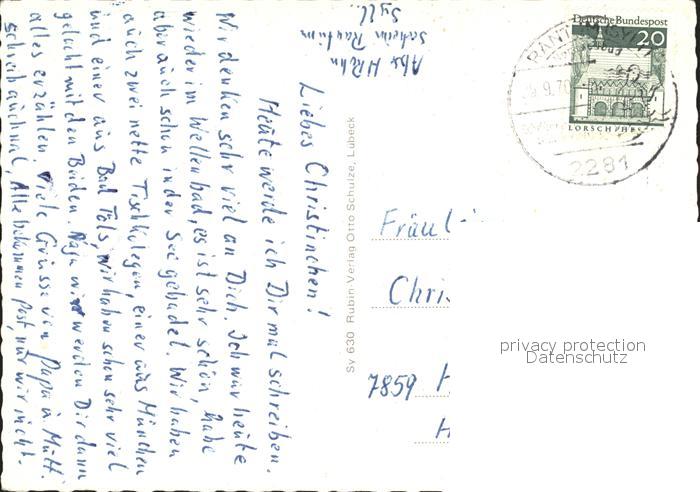 Liebes Christinchen!
Heute werde ich Dir mal schreiben.
Wir denken sehr viel an Dich. Ich war heute
wieder im Wellenbad, es ist sehr schön, habe
aber auch schon in der See gebadet. Wir haben
auch zwei nette Tischkolegen, einer aus München
und einer aus Bad Tölz, wir haben schon sehr viel
gelacht mit den Beiden. Naja wir werden Dir dann
alles erzählen. Viele Grüsse von Papa u. Mutti.
schreib auch mal, Alle bekommen Post, nur wir nicht.
Abs
Rantum
Sylt.
Sy 630 Rubin-Verlag Otto Schulze, Lübeck
Deutsche Bundespost
20
LORSCH/HESS
RANTUM (SYLT)
9.70
2281
Fräul
Chris
7859 H
H
privacy protection
Datenschutz